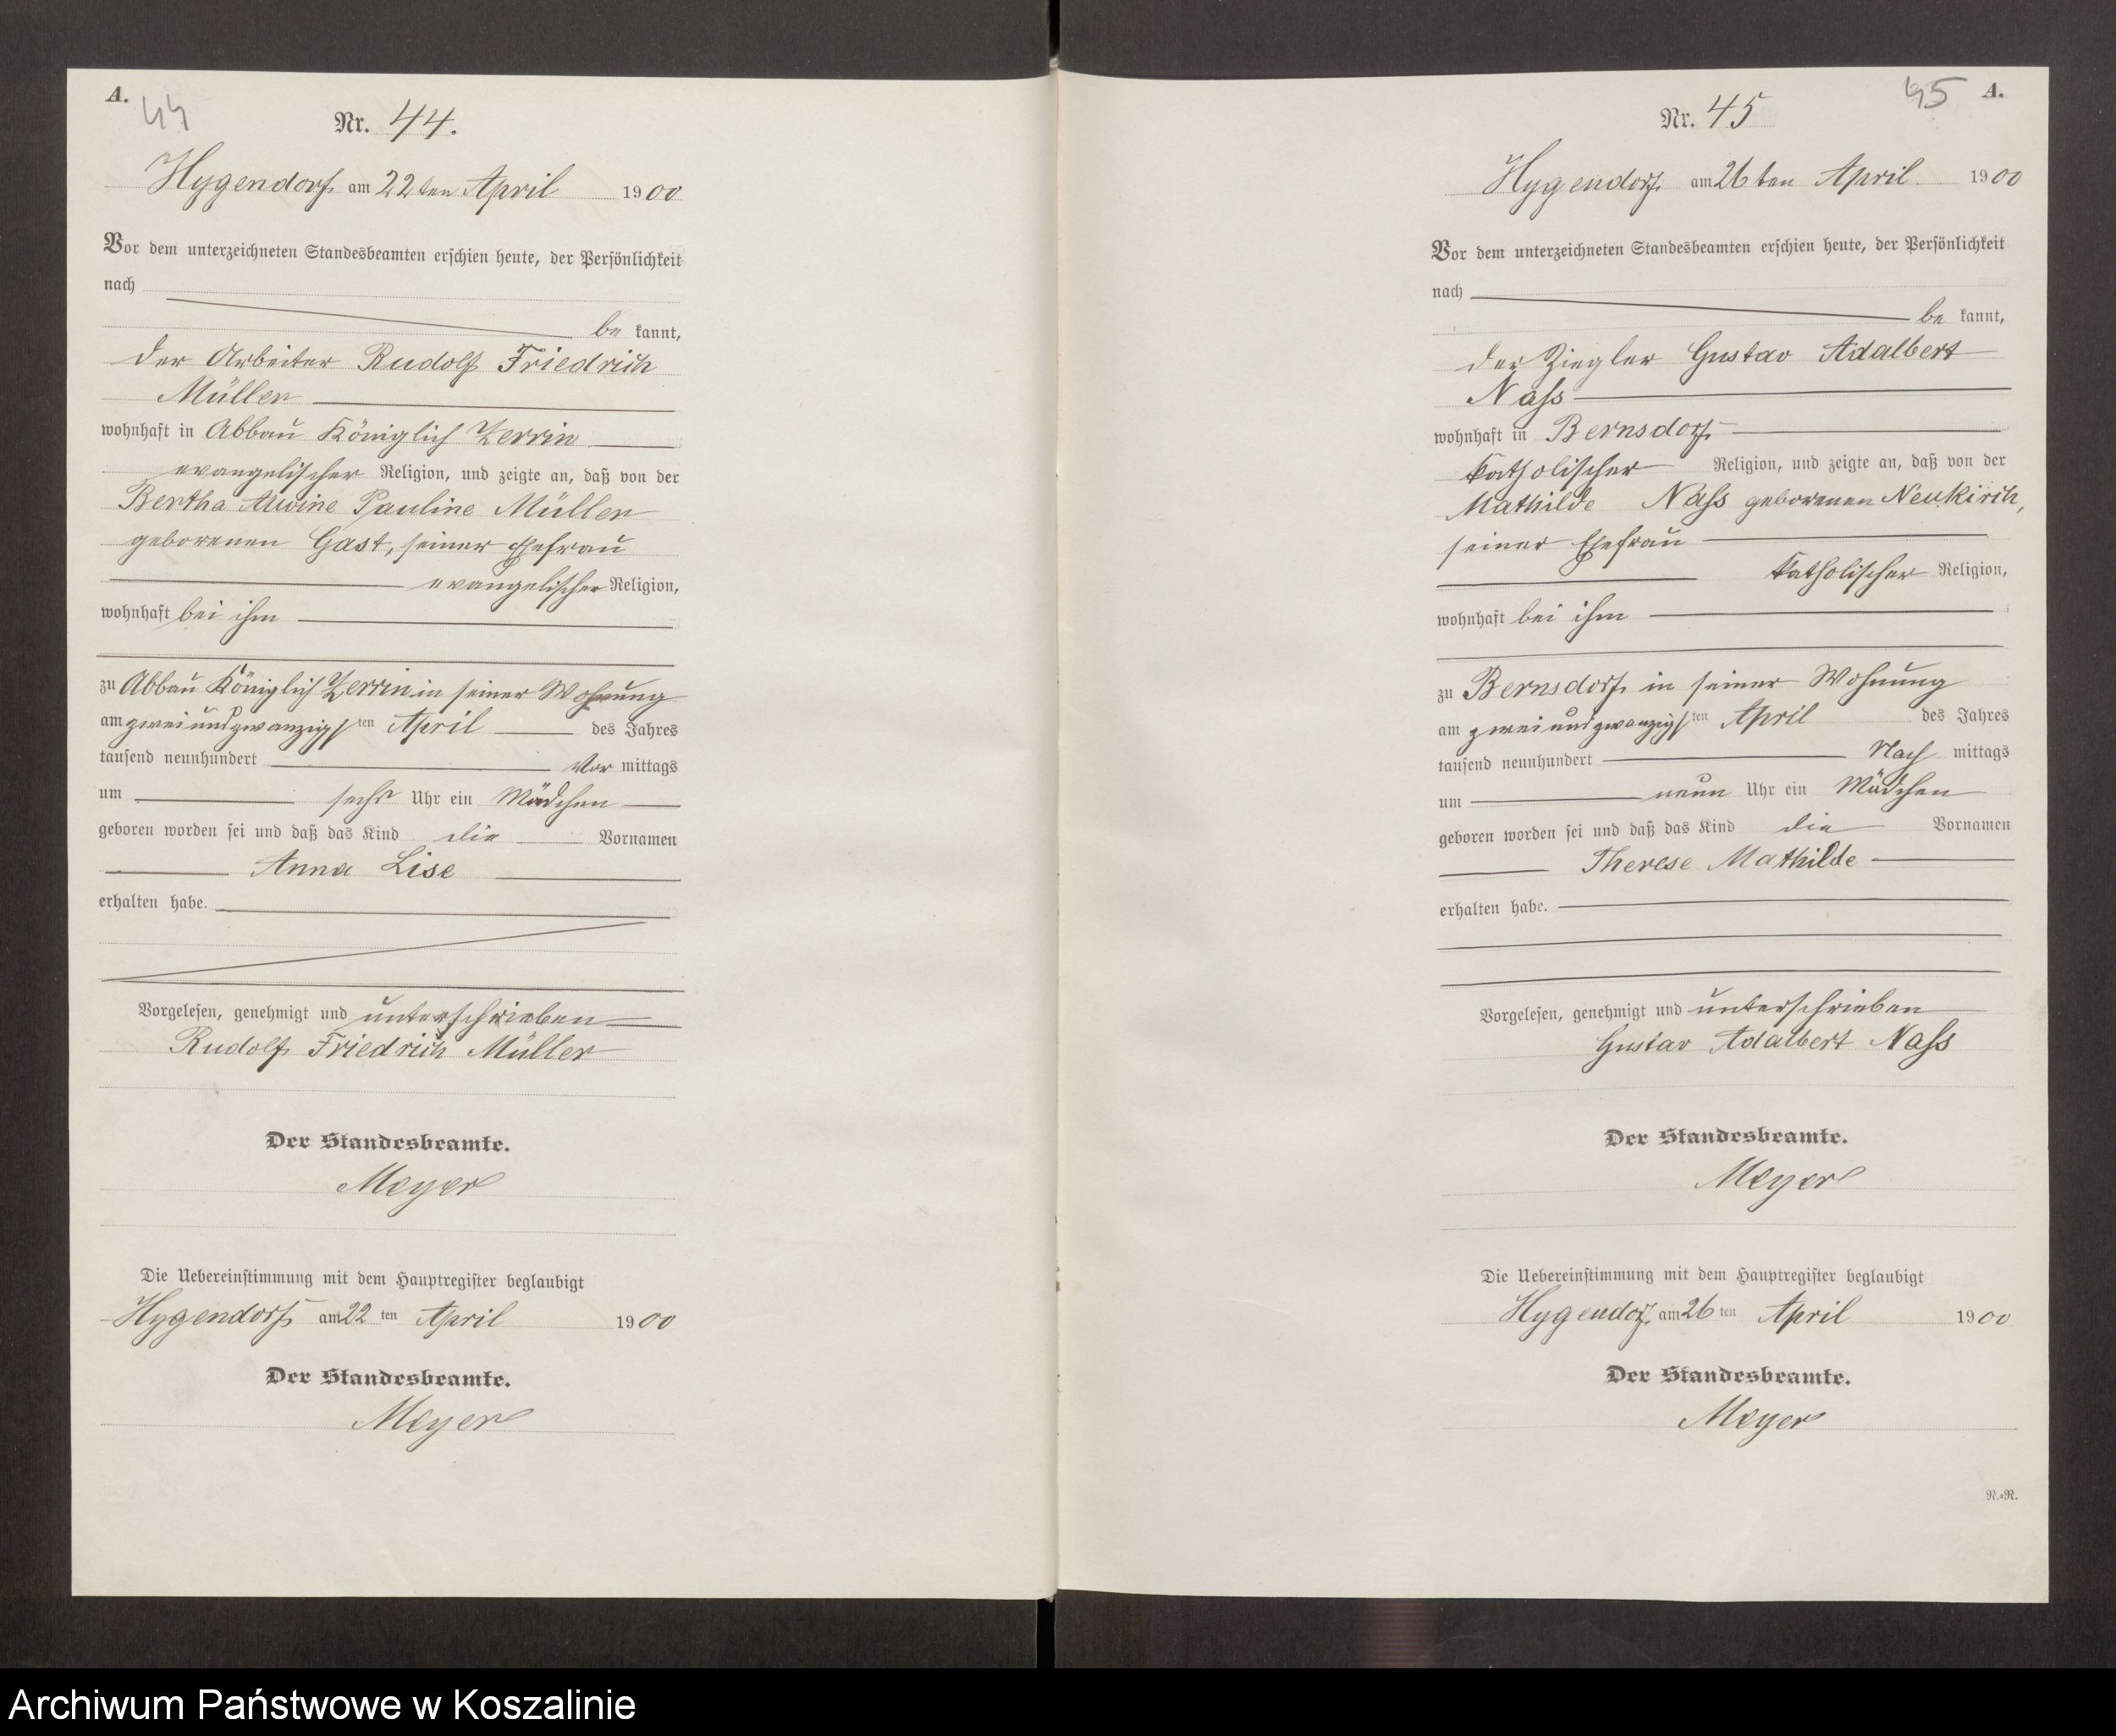 A.
44
Nr. 44.
Hygendorf am 22ten April 1900
Vor dem unterzeichneten Standesbeamten erschien heute, der Persönlichkeit
nach
be kannt,
der Arbeiter Rudolf Friedrich
Müller
wohnhaft in Abbau Königlich Zerrin
evangelischer Religion, und zeigte an, daß von der
Bertha Alwine Pauline Müller
geborenen Gast, seiner Ehefrau
evangelischer Religion,
wohnhaft bei ihm
zu Abbau Königlich Zerrin in seiner Wohnung
am zweiundzwanzigsten April des Jahres
tausend neunhundert Vor mittags
um sechs Uhr ein Mädchen
geboren worden sei und daß das Kind die Vornamen
Anna Lise
erhalten habe.
Vorgelesen, genehmigt und unterschrieben
Rudolf Friedrich Müller
Der Standesbeamte.
Meyer
Die Uebereinstimmung mit dem Hauptregister beglaubigt
Hygendorf am 22 ten April 1900
Der Standesbeamte.
Meyer
45 A.
Nr. 45
Hygendorf am 26ten April 1900
Vor dem unterzeichneten Standesbeamten erschien heute, der Persönlichkeit
nach
be kannt,
der Ziegler Gustav Adalbert
Nass
wohnhaft in Bernsdorf
katholischer Religion, und zeigte an, daß von der
Mathilde Nass geborenen Neukirch,
seiner Ehefrau
katholischer Religion,
wohnhaft bei ihm
zu Bernsdorf in seiner Wohnung
am zweiundzwanzigsten April des Jahres
tausend neunhundert Nach mittags
um neun Uhr ein Mädchen
geboren worden sei und daß das Kind die Vornamen
Therese Mathilde
erhalten habe.
Vorgelesen, genehmigt und unterschrieben
Gustav Adalbert Nass
Der Standesbeamte.
Meyer
Die Uebereinstimmung mit dem Hauptregister beglaubigt
Hygendorf, am 26 ten April 1900
Der Standesbeamte.
Meyer
N.=N.
Archiwum Państwowe w Koszalinie